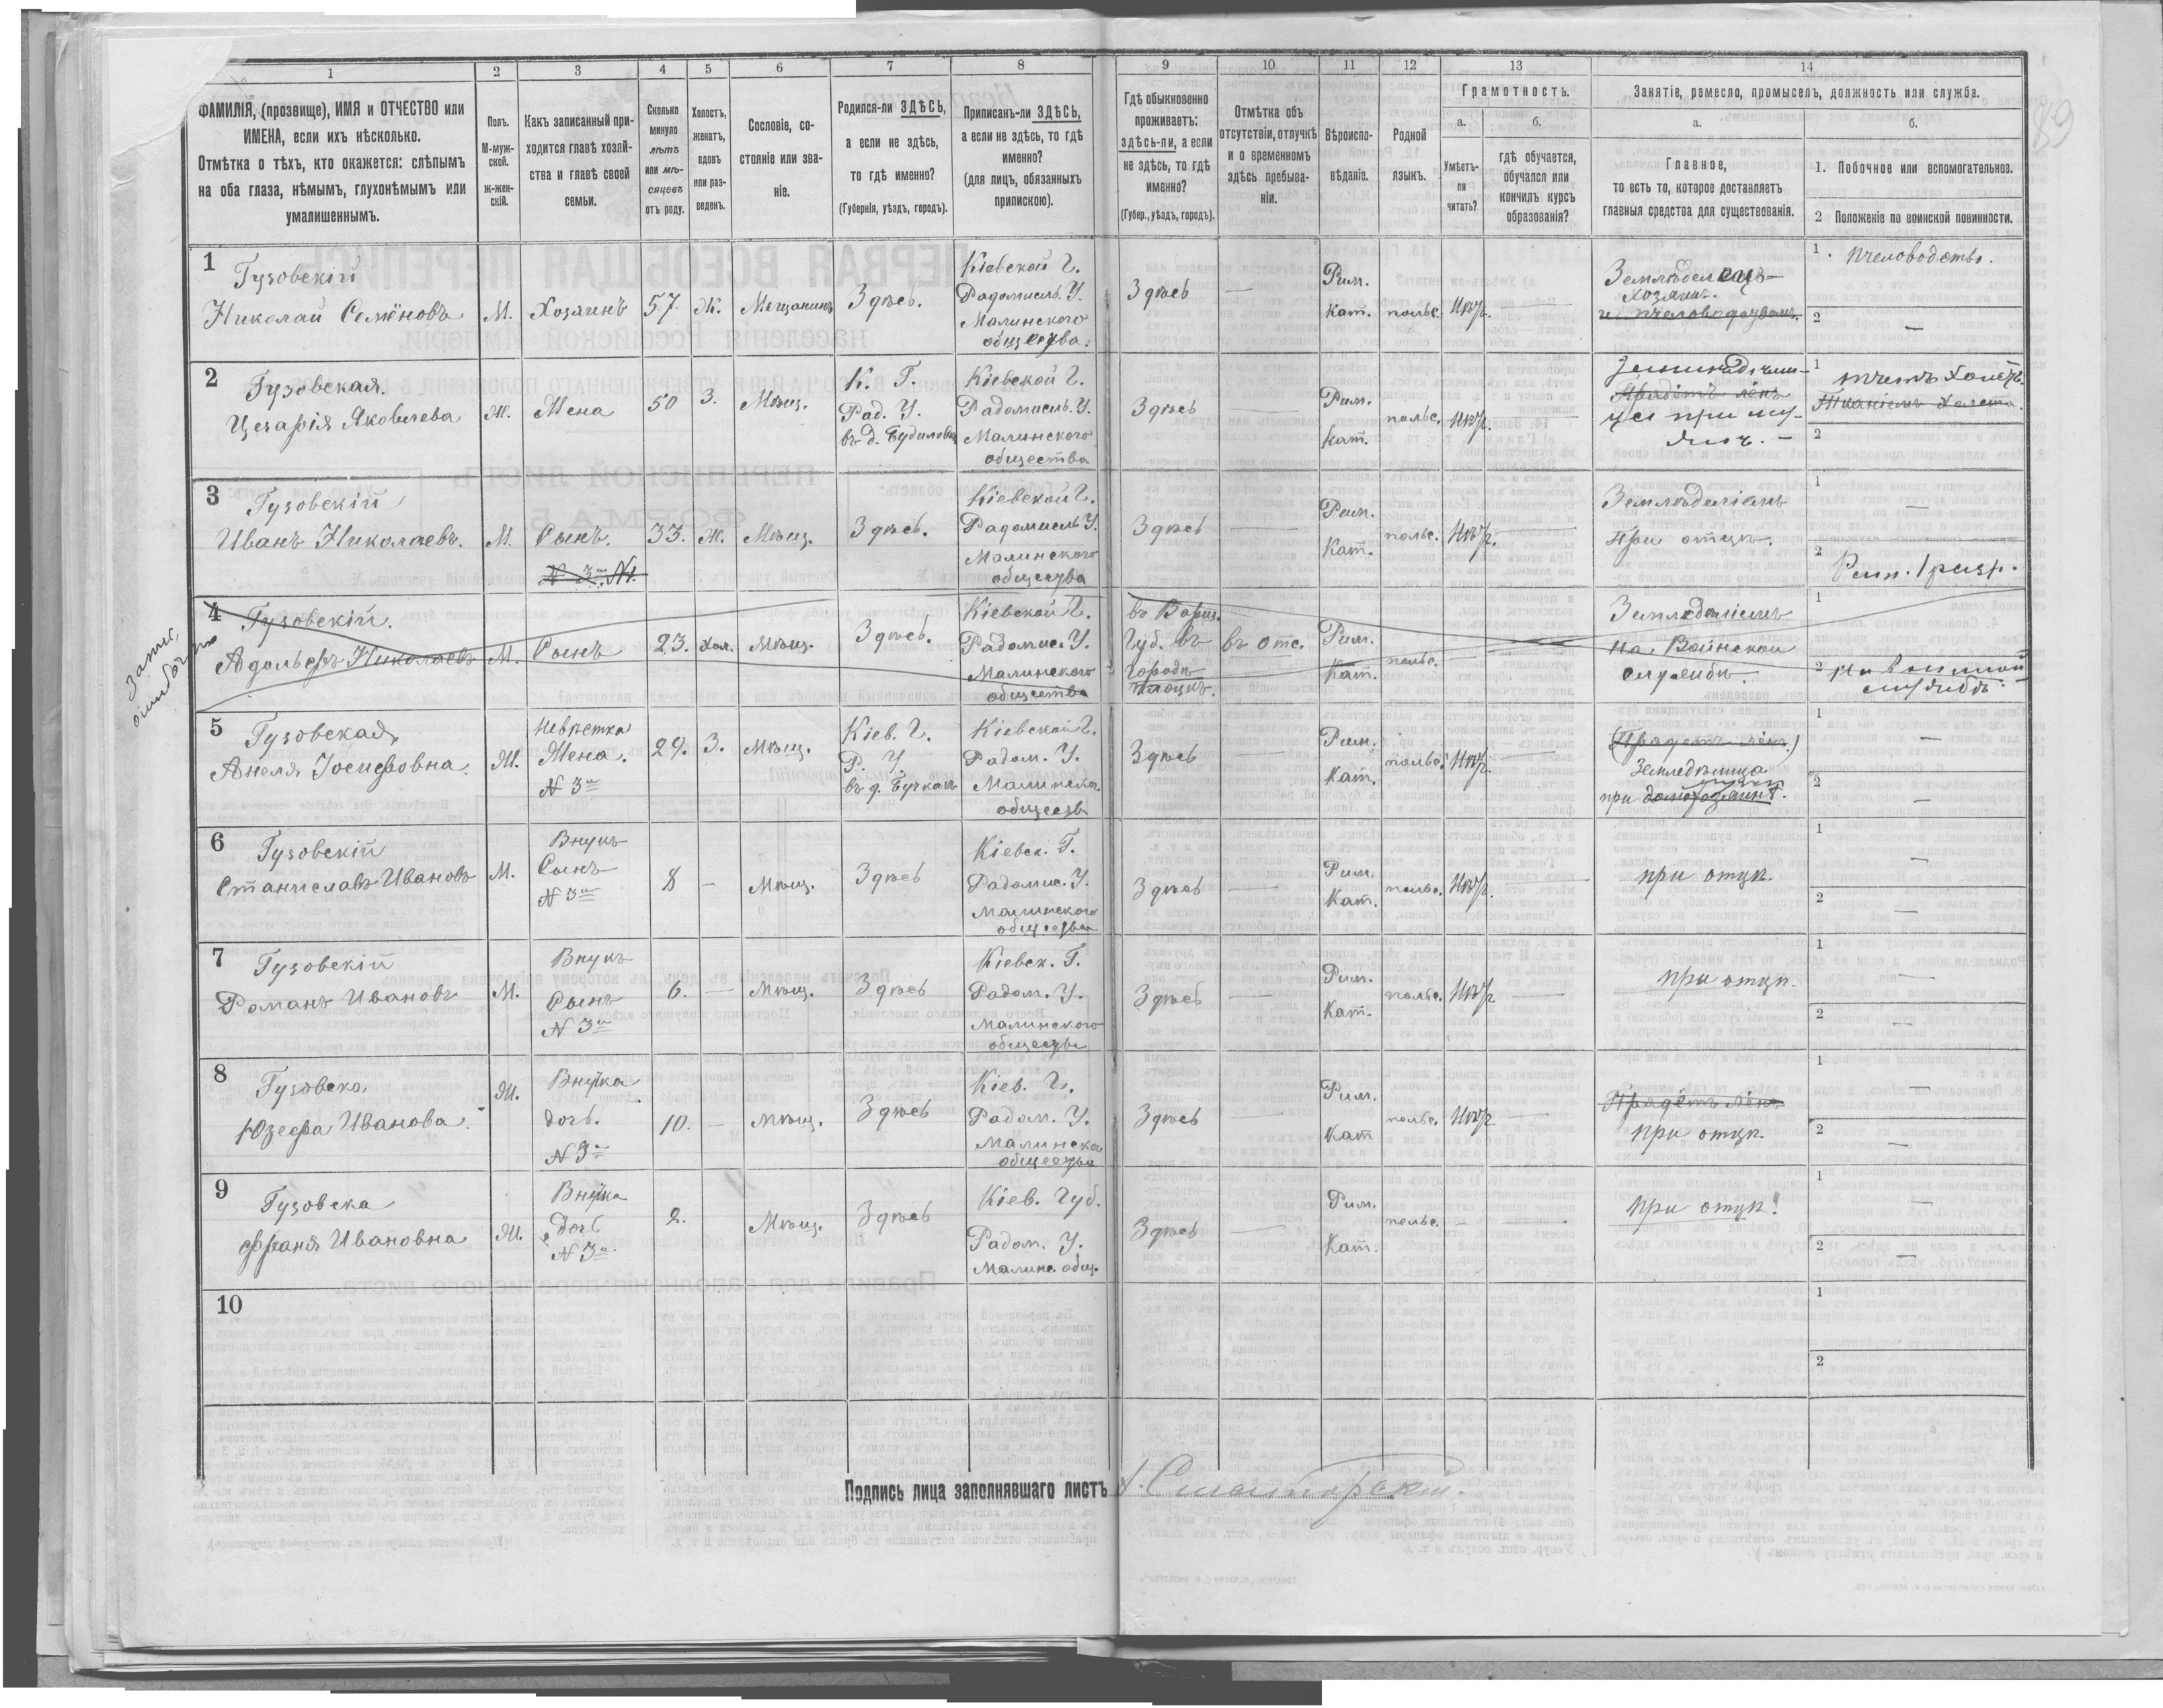 89
1 2 3 4 5 6 7 8 9 10 11 12 13 14
ФАМИЛІЯ, (прозвище), ИМЯ и ОТЧЕСТВО или
ИМЕНА, если ихъ нѣсколько.
Отмѣтка о тѣхъ, кто окажется: слѣпымъ
на оба глаза, нѣмымъ, глухонѣмымъ или
умалишеннымъ.
Полъ.
М-муж-
ской.
ж-жен-
скій.
Какъ записанный при-
ходится главѣ хозяй-
ства и главѣ своей
семьи.
Сколько
минуло
лѣтъ
или мѣ-
сяцевъ
отъ роду.
Холостъ,
женатъ,
вдовъ
или раз-
веденъ.
Сословіе, со-
стояніе или зва-
ніе.
Родился-ли ЗДѢСЬ,
а если не здѣсь,
то гдѣ именно?
(Губернія, уѣздъ, городъ).
Приписанъ-ли ЗДѢСЬ,
а если не здѣсь, то гдѣ
именно?
(для лицъ, обязанныхъ
припискою).
Гдѣ обыкновенно
проживаетъ:
здѣсь-ли, а если
не здѣсь, то гдѣ
именно?
(Губер., уѣздъ, городъ).
Отмѣтка объ
отсутствіи, отлучкѣ
и о временномъ
здѣсь пребыва-
ніи.
Вѣроиспо-
вѣданіе.
Родной
языкъ.
Грамотность.
а.
Умѣетъ-
ли
читать?
б.
гдѣ обучается,
обучался или
кончилъ курсъ
образованія?
Занятіе, ремесло, промыселъ, должность или служба.
а.
Главное,
то есть то, которое доставляетъ
главныя средства для существованія.
б.
1. Побочное или вспомогательное.
2 Положеніе по воинской повинности.
1
Гузовскій
Николай Семёновъ
М.
Хозяинъ
57.
Ж.
Мѣщанинъ
Здѣсь.
Кіевской Г.
Радомысль. У.
Малинского
общества.
Здѣсь
—
Рим.
Кат.
польс.
Нѣтъ.
—
Земледѣлецъ-
хозяинъ.
и пчеловодствомъ.
1. пчеловодство.
2 —
2
Гузовская.
Цезарія Яковлева
Ж.
Жена
50
З.
Мѣщ.
К. Г.
Рад. У.
въ д.
Кіевской Г.
Радомысль. У.
Малинского
общества
Здѣсь
—
Рим.
Кат.
польс.
Нѣтъ.
—
Прядётъ лёнъ
при му-
1
Тканіемъ холста.
2
3
Гузовскій
Иванъ Николаевъ.
М.
Сынъ.
33.
Ж.
Мѣщ.
Здѣсь.
Кіевской Г.
Радомысль У.
Малинского
общества
Здѣсь
—
Рим.
Кат.
польс.
Нѣтъ.
—
Земледѣліемъ
при отцѣ.
1 —
2
Рат. 1 разр.
4
Гузовскій.
Адольфъ Николаевъ
М.
Сынъ
23.
Хол.
Мѣщ.
Здѣсь.
Кіевской Г.
Радомис. У.
Малинского
общества
въ Варш.
Губ. въ
Городѣ
Плоцкъ.
въ отс.
Рим.
Кат.
польс.
Земледѣліемъ
на Воинской
службѣ.
1
2 на военной
службѣ.
5
Гузовская
Анеля Іосифовна.
Ж.
Невѣстка
Жена.
N 3го
29.
З.
Мѣщ.
Кіев. Г.
Р. У.
въ д. Бучкахъ
Кіевской Г.
Радом. У.
Малинского
обществ
Здѣсь
—
Рим.
Кат.
польс.
Нѣтъ.
—
(Прядетъ лёнъ)
Земледѣлица
при домохозяинѣ.
1 —
2 —
6
Гузовскій
Станиславъ Ивановъ
М.
Внукъ
Сынъ
N 3го
8
—
Мѣщ.
Здѣсь
Кіевск. Г.
Радомис. У.
Малинского
общества
Здѣсь
—
Рим.
Кат.
польс.
Нѣтъ.
—
при отцѣ.
1 —
2 —
7
Гузовскій
Романъ Ивановъ
М.
Внукъ
Сынъ
N 3го
6.
—
Мѣщ.
Здѣсь
Кіевск. Г.
Радом. У.
Малинского
общества
Здѣсь
—
Рим.
Кат.
польс.
Нѣтъ
—
при отцѣ.
1 —
2 —
8
Гузовска
Юзефа Иванова.
Ж.
Внучка
дочь.
N 3го
10.
—
Мѣщ.
Здѣсь
Кіев. Г.
Радом. У.
Малинска
общества
Здѣсь
—
Рим.
Кат
польс.
Нѣтъ
—
Прядётъ лёнъ
при отцѣ.
1 —
2 —
9
Гузовска
Франя Ивановна
Ж.
Внучка
Дочь
N 3го
2.
Мѣщ.
Здѣсь
Кіев. Губ.
Радом. У.
Малинс. общ.
Здѣсь
—
Рим.
Кат.
польс.
—
—
при отцѣ.
1 —
2 —
10
1
2
Подпись лица заполнявшаго листъ